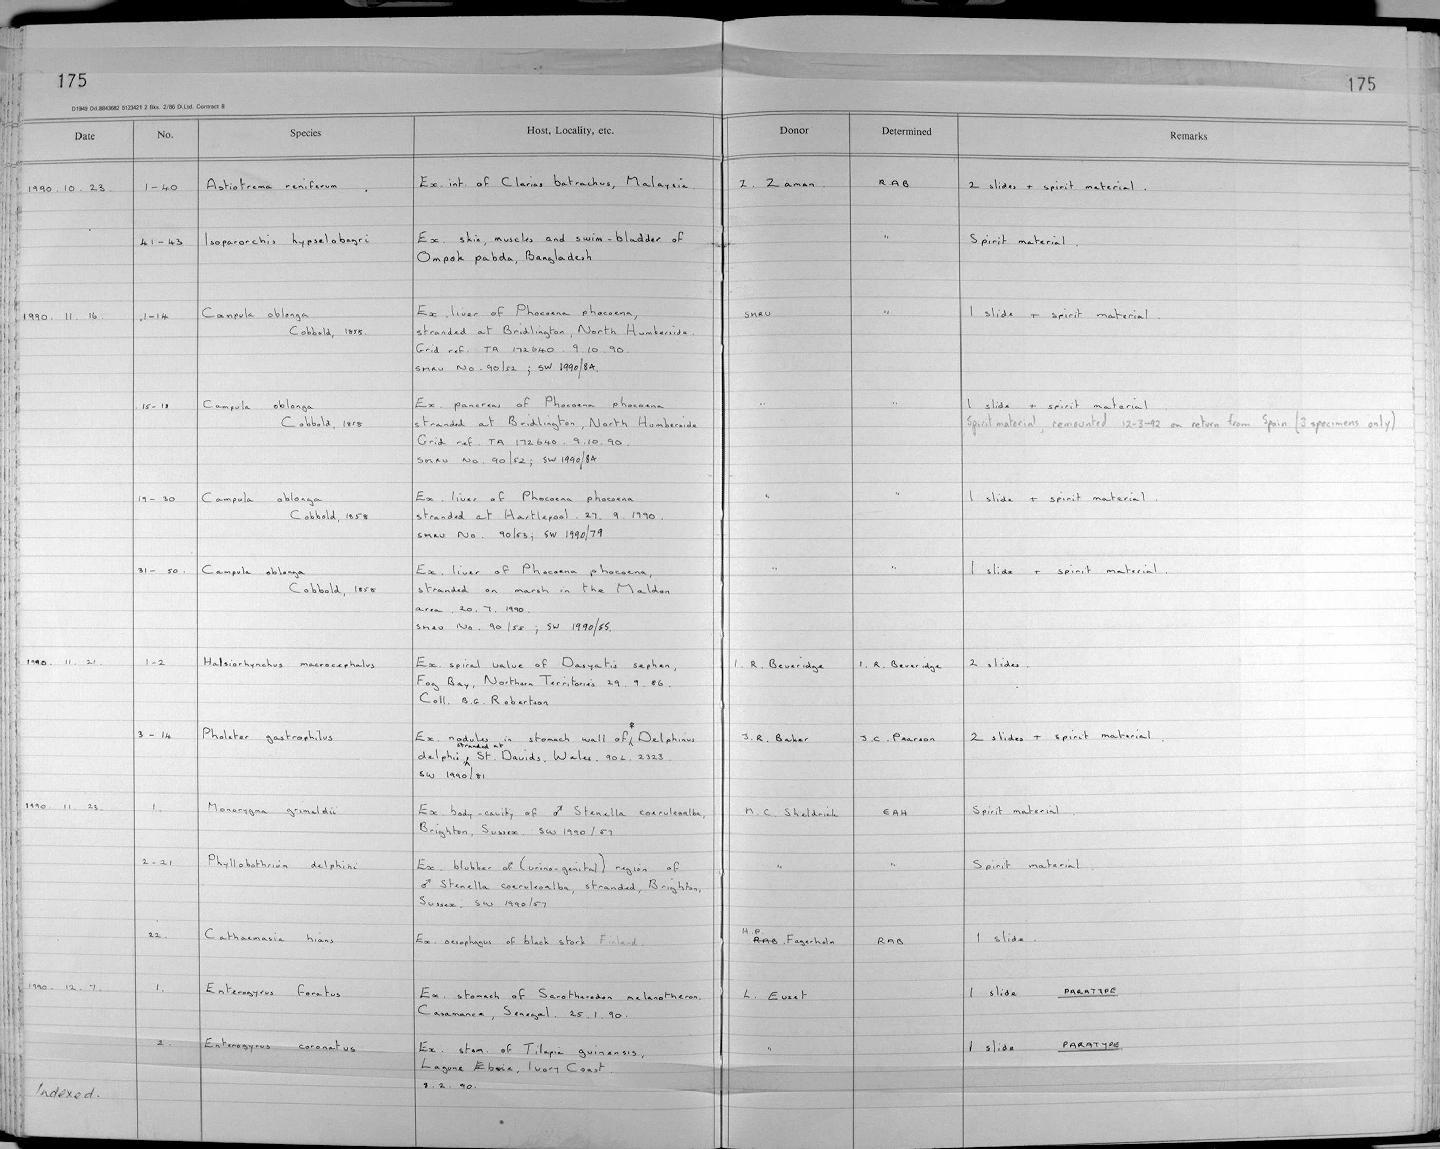 175
175
D1949 Dd.8843682 5123421 2 Bks. 2/86 D.Ltd. Contract 8
Date No. Species Host, Locality, etc. Donor Determined Remarks
1990. 10. 23. 1-40 Astiotrema reniferum. Ex. int. of Clarias batrachus, Malaysia Z. Zaman. RAB 2 slides + spirit material.
41-43 Isoparorchis hypselobagri Ex. skin, muscles and swim-bladder of " Spirit material.
Ompok pabda, Bangladesh
1990. 11. 16. 1-14 Campula oblonga Ex. liver of Phocoena phocoena, SMRU " 1 slide + spirit material.
Cobbold, 1858. stranded at Bridlington, North Humberside.
Grid ref. TA 172640. 9.10.90.
SMRU No. 90/52; SW 1990/84.
15-18 Campula oblonga Ex. pancreas of Phocoena phocoena " " 1 slide + spirit material
Cobbold, 1858 stranded at Bridlington, North Humberside Spirit material, remounted 12-3-92 on return from Spain (3 specimens only)
Grid ref. TA 172640. 9.10.90.
SMRU No. 90/52; SW 1990/84
19-30 Campula oblonga Ex. liver of Phocoena phocoena " " 1 slide + spirit material.
Cobbold, 1858 stranded at Hartlepool. 27. 9. 1990.
SMRU No. 90/53; SW 1990/79
31-50. Campula oblonga Ex. liver of Phocoena phocoena, " " 1 slide + spirit material.
Cobbold, 1858 stranded on marsh in the Maldon
area. 20. 7. 1990.
SMRU No. 90/55; SW 1990/55.
1990. 11. 21. 1-2 Halsiorhynchus macrocephalus Ex. spiral valve of Dasyatis sephen, I. R. Beveridge I. R. Beveridge 2 slides.
Fog Bay, Northern Territories 29. 9. 86.
Coll. B.G. Robertson
3-14 Pholeter gastrophilus Ex. nodules in stomach wall of ♀ Delphinus J.R. Baker J.C. Pearson 2 slides + spirit material.
delphis stranded at St. Davids, Wales. 902. 2323.
SW 1990/81
1990. 11. 23. 1. Monorygma grimaldii Ex. body-cavity of ♂ Stenella coeruleoalba, M.C. Sheldrick EAH Spirit material.
Brighton, Sussex. SW 1990/57
2-21 Phyllobothrium delphini Ex. blubber of (urino-genital) region of " " Spirit material
♂ Stenella coeruleoalba, stranded, Brighton,
Sussex. SW 1990/57
22. Cathaemasia hians Ex. oesophagus of black stork Finland. H.P. RAB. Fagerholm RAB 1 slide.
1990. 12. 7. 1. Enterogyrus foratus Ex. stomach of Sarotherodon melanotheron. L. Euzet 1 slide PARATYPE
Casamance, Senegal. 25.1.90.
2. Enterogyrus coronatus Ex. stom. of Tilapia guinensis, " 1 slide PARATYPE
Lagune Ebrie, Ivory Coast.
8.2.90.
Indexed.